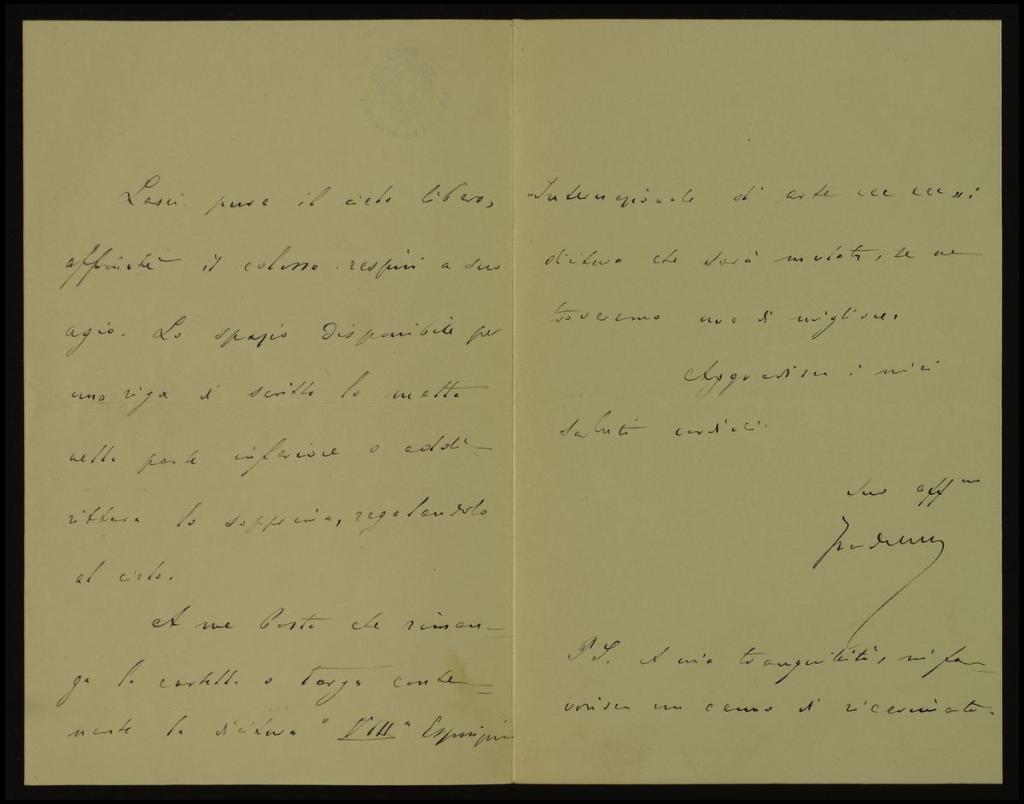 Lasci pure il cielo libero,
affinchè il colosso respiri a suo
agio. Lo spazio disponibile per
una riga di scritto lo metta
nella parte inferiore o addi=
rittura lo sopprima, regalandolo
al cielo.
A me basta che riman=
ga la cartella o targa conte=
nente la dicitura "VIIIa Esposizione
Internazionale di arte ecc ecc";
dicitura che sarà mutata, se ne
troveremo una di migliore.
Aggradisca i miei
saluti cordiali.
Suo affmo
P.S. A mia tranquillità, mi fa=
vorisca un cenno di ricevuta.